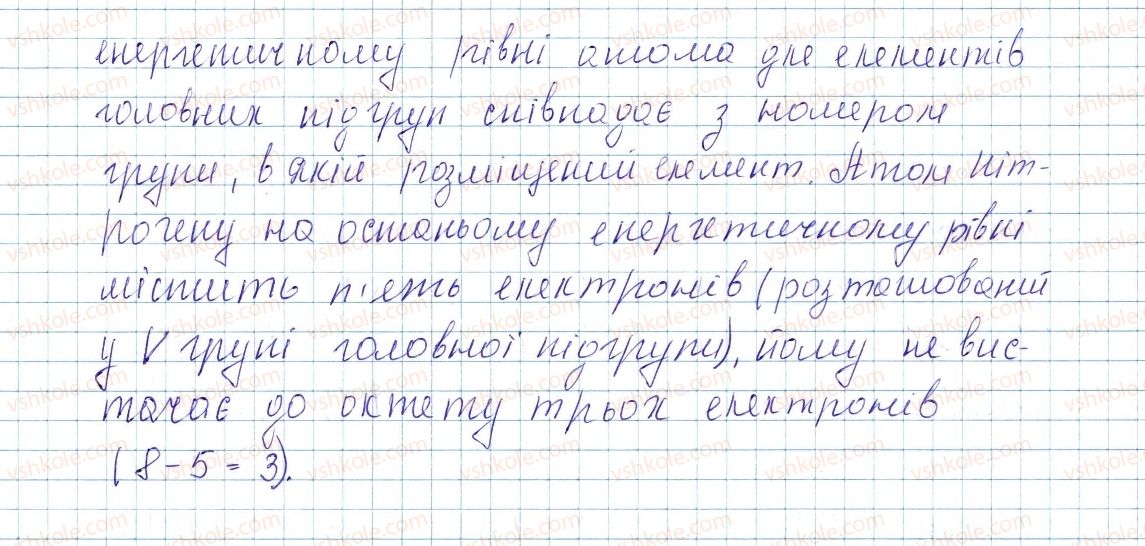 енергетичному рівні атома для елементів
головних підгруп співпадає з номером
групи, в якій розміщений елемент. Атом Ніт-
рогену на останьому енергетичному рівні
містить п'ять електронів (розташований
у V групі головної підгрупи), йому не вис-
тачає до октету трьох електронів
(8 - 5 = 3).